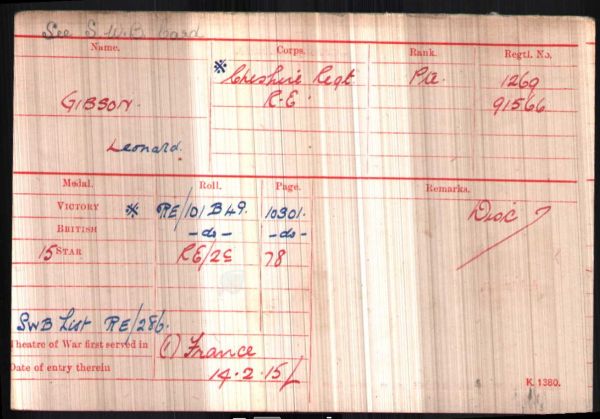 See S.W.B. Card
Name. Corps. Rank. Regtl. No.
* Cheshire Regt Pte. 1269
GIBSON. R.E. 91566
Leonard.
Medal. Roll. Page. Remarks.
VICTORY * RE/101 B49. 10301. Disc
BRITISH -do- -do-
15 STAR RE/2C 78
SWB List RE/286.
Theatre of War first served in (1) France
Date of entry therein 14.2.15
K. 1380.